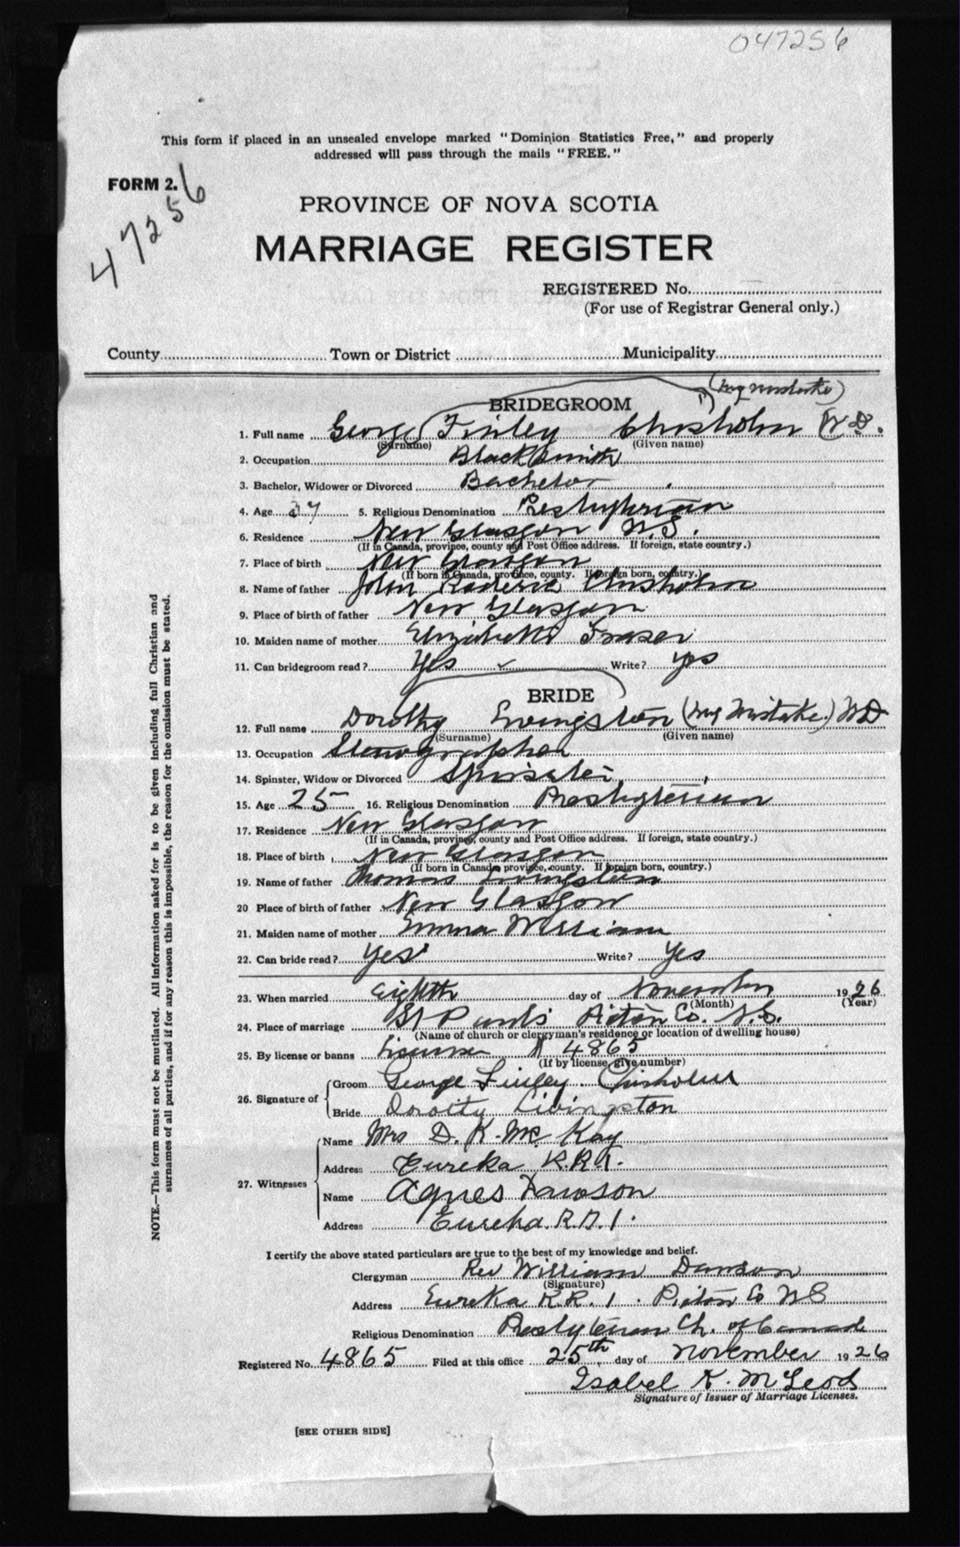 047256
This form if placed in an unsealed envelope marked "Dominion Statistics Free," and properly
addressed will pass through the mails "FREE."
FORM 2.
47256
PROVINCE OF NOVA SCOTIA
MARRIAGE REGISTER
REGISTERED No.
(For use of Registrar General only.)
County Town or District Municipality
(my mistake)
BRIDEGROOM
1. Full name George Finley Chisholm W D.
(Surname) (Given name)
2. Occupation BlackSmith
3. Bachelor, Widower or Divorced Bachelor
4. Age 27 5. Religious Denomination Presbyterian
6. Residence New Glasgow N.S.
(If in Canada, province, county and Post Office address. If foreign, state country.)
7. Place of birth New Glasgow
(If born in Canada, province, county. If foreign born, country.)
8. Name of father John Roderic Chisholm
9. Place of birth of father New Glasgow
10. Maiden name of mother Elizabeth Fraser
11. Can bridegroom read? Yes Write? yes
BRIDE
12. Full name Dorothy Livingston (my mistake.) W D
(Surname) (Given name)
13. Occupation Stenographer
14. Spinster, Widow or Divorced Spinster
15. Age 25 16. Religious Denomination Presbyterian
17. Residence New Glasgow
(If in Canada, province, county and Post Office address. If foreign, state country.)
18. Place of birth New Glasgow
(If born in Canada province, county. If foreign born, country.)
19. Name of father Thomas Livingston
20 Place of birth of father New Glasgow
21. Maiden name of mother Emma William
22. Can bride read? Yes Write? Yes
23. When married Eighth day of November 1926
(Month) (Year)
24. Place of marriage St Pauls Pictou Co. N.S.
(Name of church or clergyman's residence or location of dwelling house)
25. By license or banns License 4865
(If by license, give number)
26. Signature of Groom George Finley Chisholm
Bride Dorothy Livingston
27. Witnesses Name Mrs D. K. McKay
Address Eureka R.R.1.
Name Agnes Dawson
Address Eureka. R.R.1.
I certify the above stated particulars are true to the best of my knowledge and belief.
Clergyman Rev William Dawson
(Signature)
Address Eureka R.R. 1. Pictou Co NS
Religious Denomination Presbyterian Ch. of Canada
Registered No. 4865 Filed at this office 25th day of November 1926
Isabel K. McLeod
Signature of Issuer of Marriage Licenses.
[SEE OTHER SIDE]
NOTE.—This form must not be mutilated. All information asked for is to be given including full Christian and
surnames of all parties, and if for any reason this is impossible, the reason for the omission must be stated.